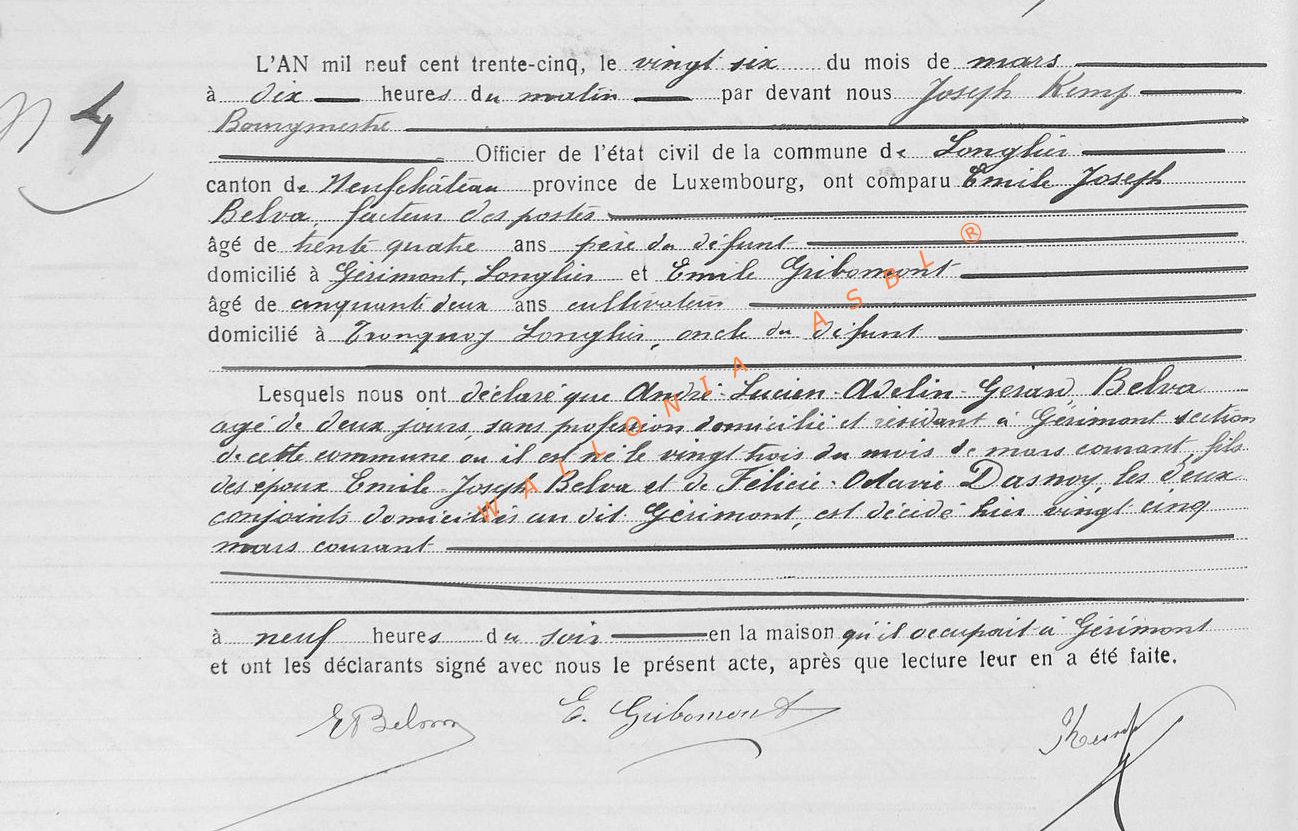 L'AN mil neuf cent trente-cinq, le vingt six du mois de mars
à dix heures du matin par devant nous Joseph Kemp
N 4
Bourgmestre
Officier de l'état civil de la commune de Longlier
canton de Neufchâteau province de Luxembourg, ont comparu Emile Joseph
Belva facteur des postes
âgé de trente quatre ans père du défunt
domicilié à Gérimont, Longlier et Emile Gribomont
âgé de cinquante deux ans cultivateur
domicilié à Tronquoy Longlier, oncle du défunt
Lesquels nous ont déclaré que André-Lucien-Adelin-Gérard, Belva
agé de deux jours, sans profession domicilié et résidant à Gérimont section
de cette commune où il est né le vingt trois du mois de mars courant, fils
des époux Emile-Joseph Belva et de Félicie-Octavie Dasnoy, les deux
conjoints domiciliés au dit Gérimont, est décédé hier vingt cinq
mars courant
à neuf heures du soir en la maison qu'il occupait à Gérimont
et ont les déclarants signé avec nous le présent acte, après que lecture leur en a été faite.
E Belva E. Gribomont Kemp
WALLONIA ASBL ®